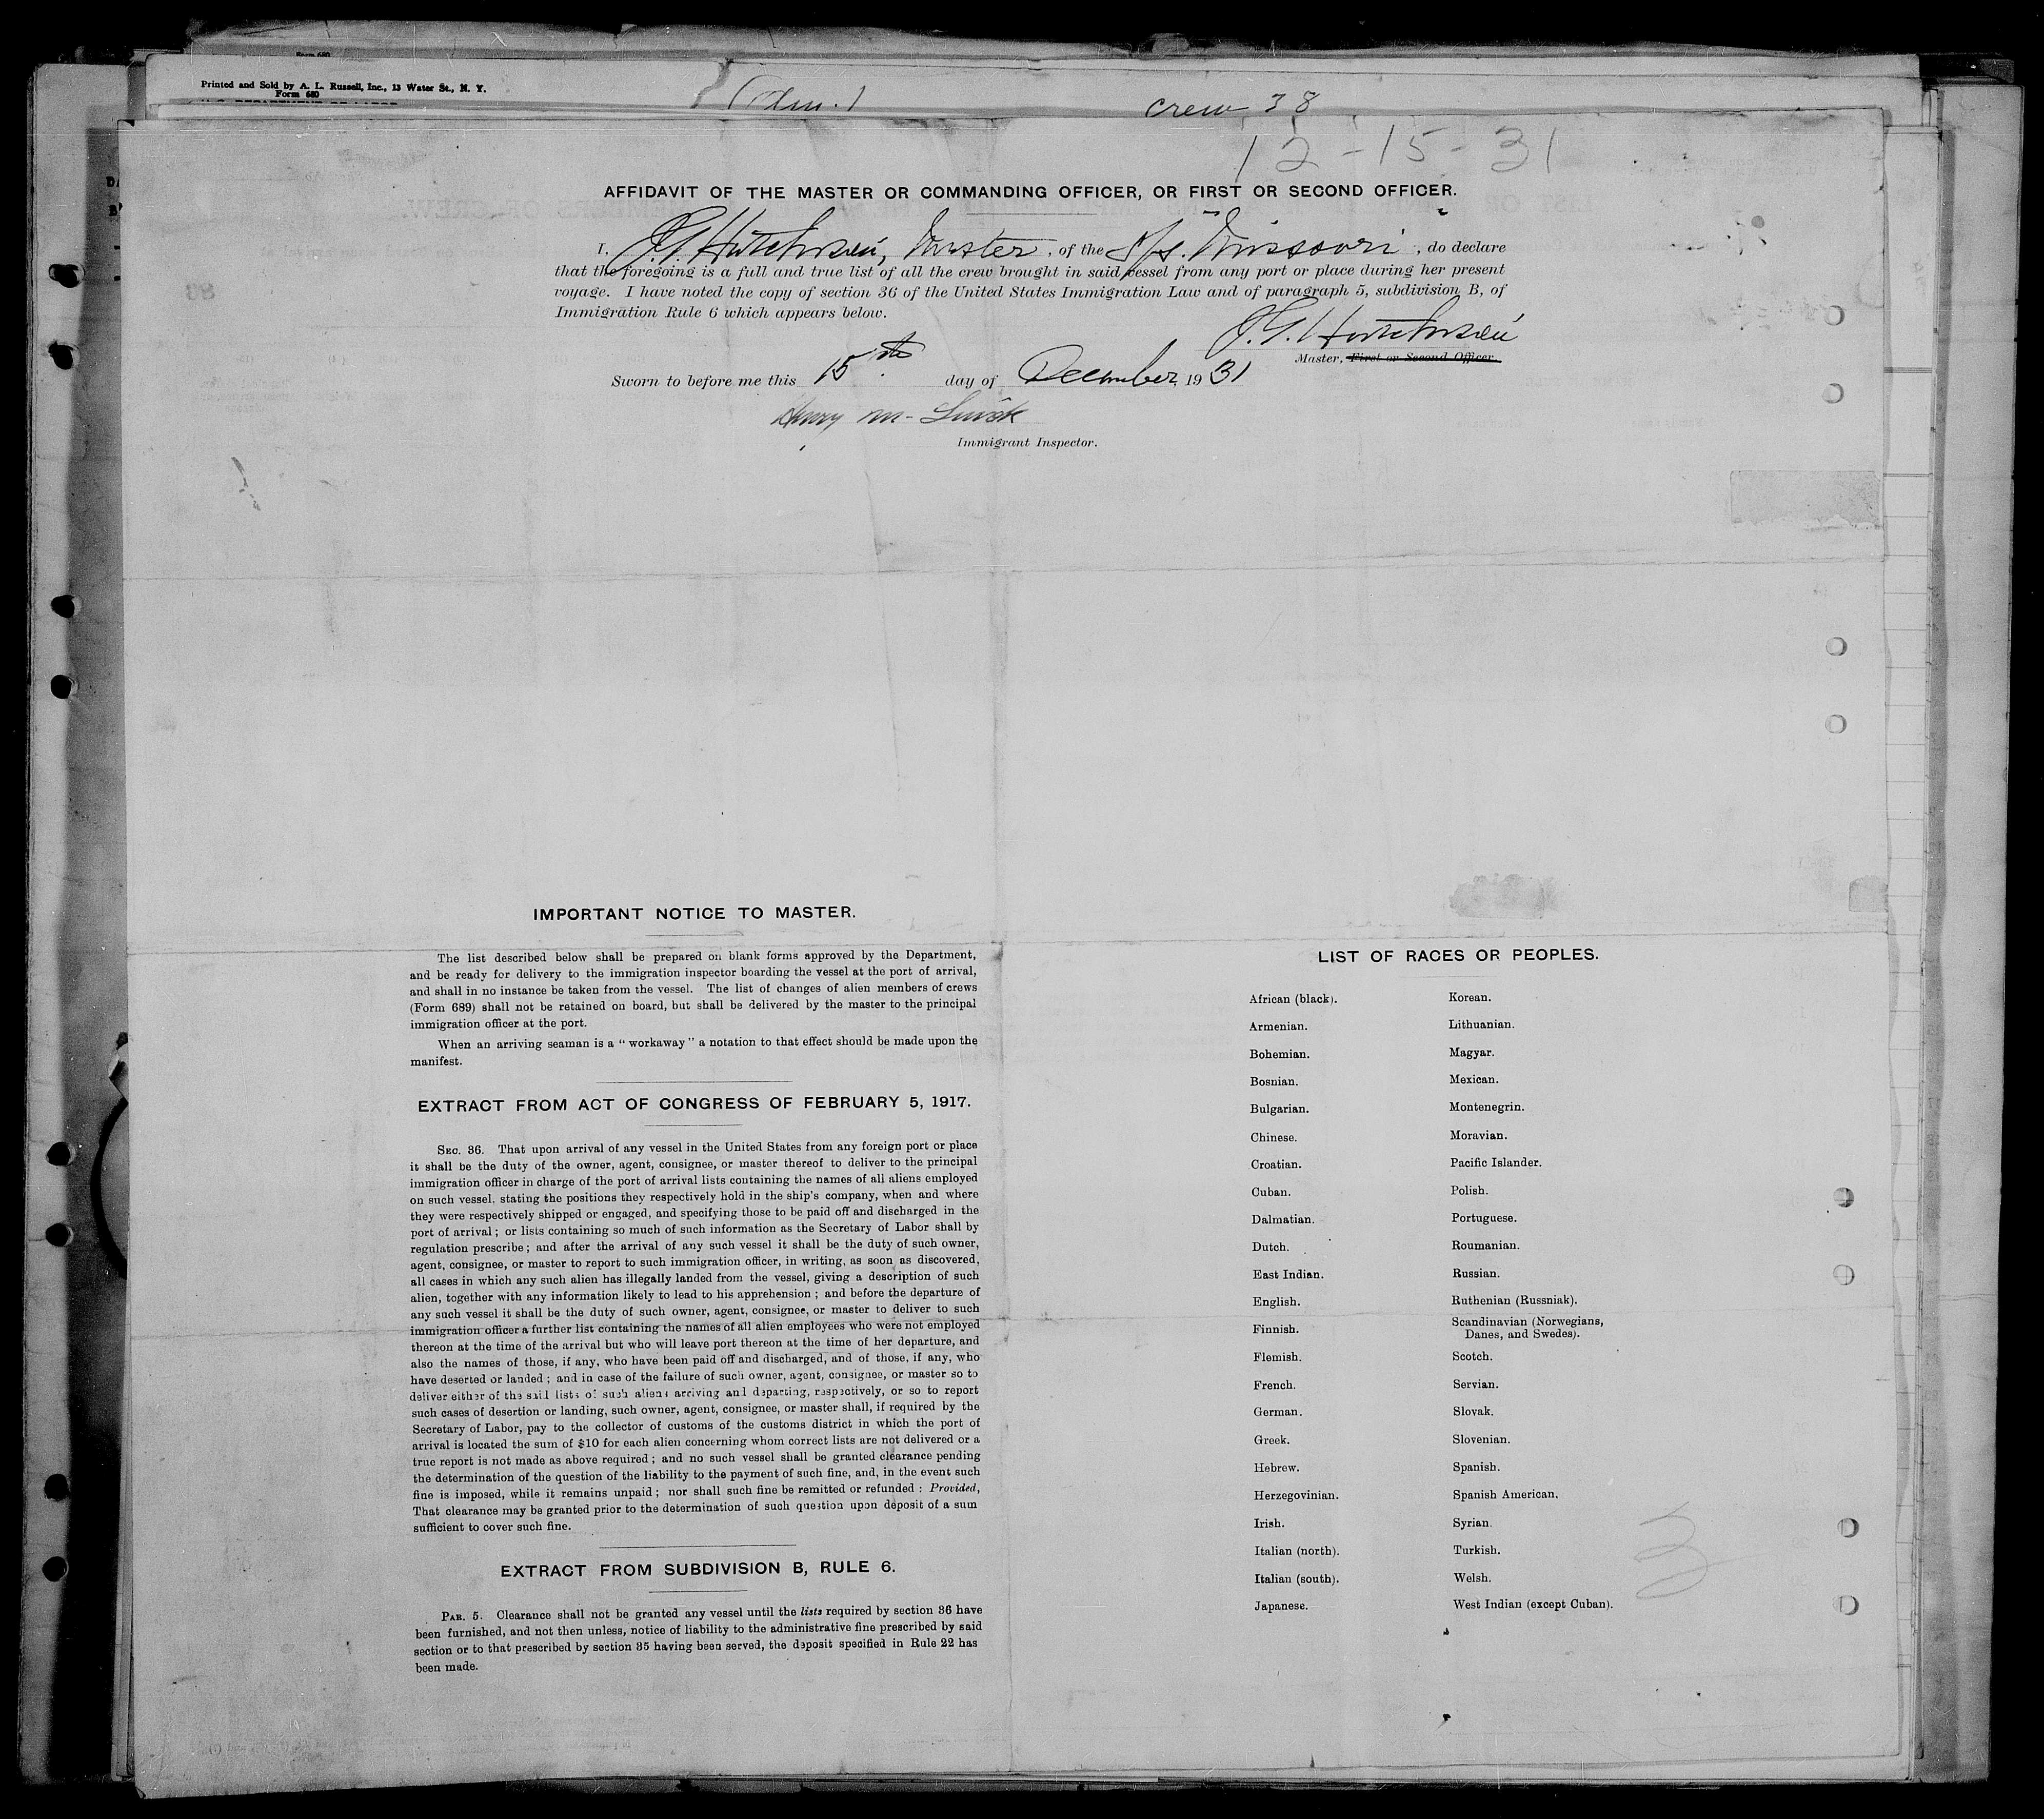 Form 680
Printed and Sold by A. L. Russell, Inc., 13 Water St., N. Y.
Form 680
crew 38
12-15-31
AFFIDAVIT OF THE MASTER OR COMMANDING OFFICER, OR FIRST OR SECOND OFFICER.
I, J. G. Hutchison, Master, of the S/S. Missouri, do declare
that the foregoing is a full and true list of all the crew brought in said vessel from any port or place during her present
voyage. I have noted the copy of section 36 of the United States Immigration Law and of paragraph 5, subdivision B, of
Immigration Rule 6 which appears below.
J. G. Hutchison
Master, First or Second Officer.
Sworn to before me this 15th day of December, 1931
Henry M.
Immigrant Inspector.
IMPORTANT NOTICE TO MASTER.
The list described below shall be prepared on blank forms approved by the Department,
and be ready for delivery to the immigration inspector boarding the vessel at the port of arrival,
and shall in no instance be taken from the vessel. The list of changes of alien members of crews
(Form 689) shall not be retained on board, but shall be delivered by the master to the principal
immigration officer at the port.
When an arriving seaman is a "workaway" a notation to that effect should be made upon the
manifest.
EXTRACT FROM ACT OF CONGRESS OF FEBRUARY 5, 1917.
SEC. 36. That upon arrival of any vessel in the United States from any foreign port or place
it shall be the duty of the owner, agent, consignee, or master thereof to deliver to the principal
immigration officer in charge of the port of arrival lists containing the names of all aliens employed
on such vessel, stating the positions they respectively hold in the ship's company, when and where
they were respectively shipped or engaged, and specifying those to be paid off and discharged in the
port of arrival; or lists containing so much of such information as the Secretary of Labor shall by
regulation prescribe; and after the arrival of any such vessel it shall be the duty of such owner,
agent, consignee, or master to report to such immigration officer, in writing, as soon as discovered,
all cases in which any such alien has illegally landed from the vessel, giving a description of such
alien, together with any information likely to lead to his apprehension; and before the departure of
any such vessel it shall be the duty of such owner, agent, consignee, or master to deliver to such
immigration officer a further list containing the names of all alien employees who were not employed
thereon at the time of the arrival but who will leave port thereon at the time of her departure, and
also the names of those, if any, who have been paid off and discharged, and of those, if any, who
have deserted or landed; and in case of the failure of such owner, agent, consignee, or master so to
deliver either of the said lists of such aliens arriving and departing, respectively, or so to report
such cases of desertion or landing, such owner, agent, consignee, or master shall, if required by the
Secretary of Labor, pay to the collector of customs of the customs district in which the port of
arrival is located the sum of $10 for each alien concerning whom correct lists are not delivered or a
true report is not made as above required; and no such vessel shall be granted clearance pending
the determination of the question of the liability to the payment of such fine, and, in the event such
fine is imposed, while it remains unpaid; nor shall such fine be remitted or refunded: Provided,
That clearance may be granted prior to the determination of such question upon deposit of a sum
sufficient to cover such fine.
EXTRACT FROM SUBDIVISION B, RULE 6.
PAR. 5. Clearance shall not be granted any vessel until the lists required by section 36 have
been furnished, and not then unless, notice of liability to the administrative fine prescribed by said
section or to that prescribed by section 35 having been served, the deposit specified in Rule 22 has
been made.
LIST OF RACES OR PEOPLES.
African (black). Korean.
Armenian. Lithuanian.
Bohemian. Magyar.
Bosnian. Mexican.
Bulgarian. Montenegrin.
Chinese. Moravian.
Croatian. Pacific Islander.
Cuban. Polish.
Dalmatian. Portuguese.
Dutch. Roumanian.
East Indian. Russian.
English. Ruthenian (Russniak).
Finnish. Scandinavian (Norwegians,
Danes, and Swedes).
Flemish. Scotch.
French. Servian.
German. Slovak.
Greek. Slovenian.
Hebrew. Spanish.
Herzegovinian. Spanish American.
Irish. Syrian.
Italian (north). Turkish.
Italian (south). Welsh.
Japanese. West Indian (except Cuban).